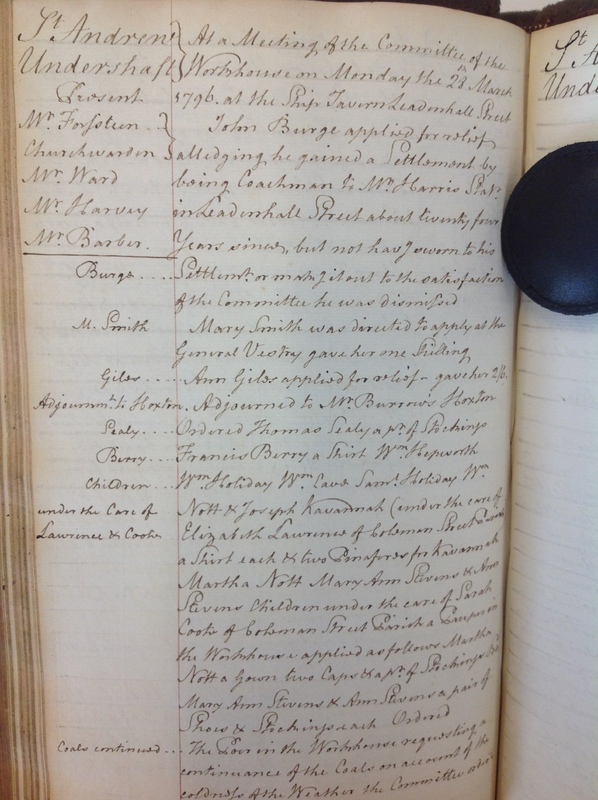 St. Andrew
Undershaft
Present
Mr. Forsteen
Churchwarden
Mr. Ward
Mr. Harvey
Mr. Barber.
At a Meeting of the Committee of the
Workhouse on Monday the 28th March
1796. at the Ship Tavern Leadenhall Street
John Burge applied for relief
alledging he gained a Settlement by
being Coachman to Mr. Harris
in Leadenhall Street about twenty four
Years since, but not havg sworn to his
Burge .... Settlemt. or makg it out to the satisfaction
of the Committee he was dismissed
M. Smith Mary Smith was directed to apply at the
General Vestry gave her one Shilling
Giles .... Ann Giles applied for relief - gave her 2/6.
Adjournmt. to Hoxton. Adjourned to Mr. Burrows Hoxton
Sealy .... Ordered Thomas Sealy a pr. of Stockings
Berry .... Francis Berry a Shirt Wm. Hepworth
Children .... Wm. Holiday Wm. Cave Saml. Holiday Wm.
under the Care of Nott & Joseph Kavannah (under the care of
Lawrence & Cooke Elizabeth Lawrence of Coleman Street
a Shirt each & two Pinafores for Kavannah
Martha Nott Mary Ann Stevens & Ann
Stevens Children under the care of Sarah
Cooke of Coleman Street Parish a Pauper in
the Workhouse applied as follows Martha
Nott a Gown two Caps & a pr. of Stockings
Mary Ann Stevens & Ann Stevens a pair of
Shoes & Stockings each Ordered
Coals continued ... The Poor in the Workhouse requesting a
continuance of the Coals on account of the
coldness of the Weather the Committee order
St
Unde